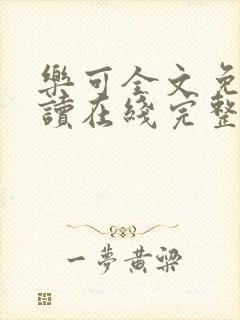 樂可全文免
讀在綫完整
一夢黃梁